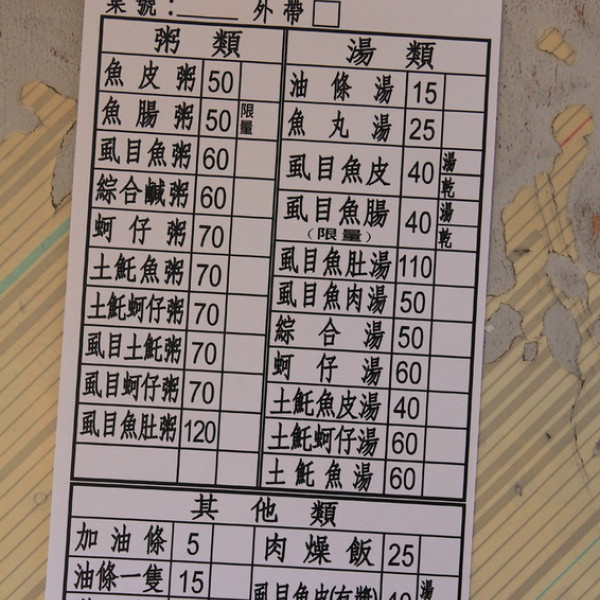 桌號：______ 外帶□
粥類
魚皮粥 50
魚腸粥 50 限量
虱目魚粥 60
綜合鹹粥 60
蚵仔粥 70
土魠魚粥 70
土魠蚵仔粥 70
虱目土魠粥 70
虱目蚵仔粥 70
虱目魚肚粥 120
湯類
油條湯 15
魚丸湯 25
虱目魚皮 40 湯 乾
虱目魚腸（限量） 40 湯 乾
虱目魚肚湯 110
虱目魚肉湯 50
綜合湯 50
蚵仔湯 60
土魠魚皮湯 40
土魠蚵仔湯 60
土魠魚湯 60
其他類
加油條 5
油條一隻 15
肉燥飯 25
虱目魚皮(有漿) 40 湯